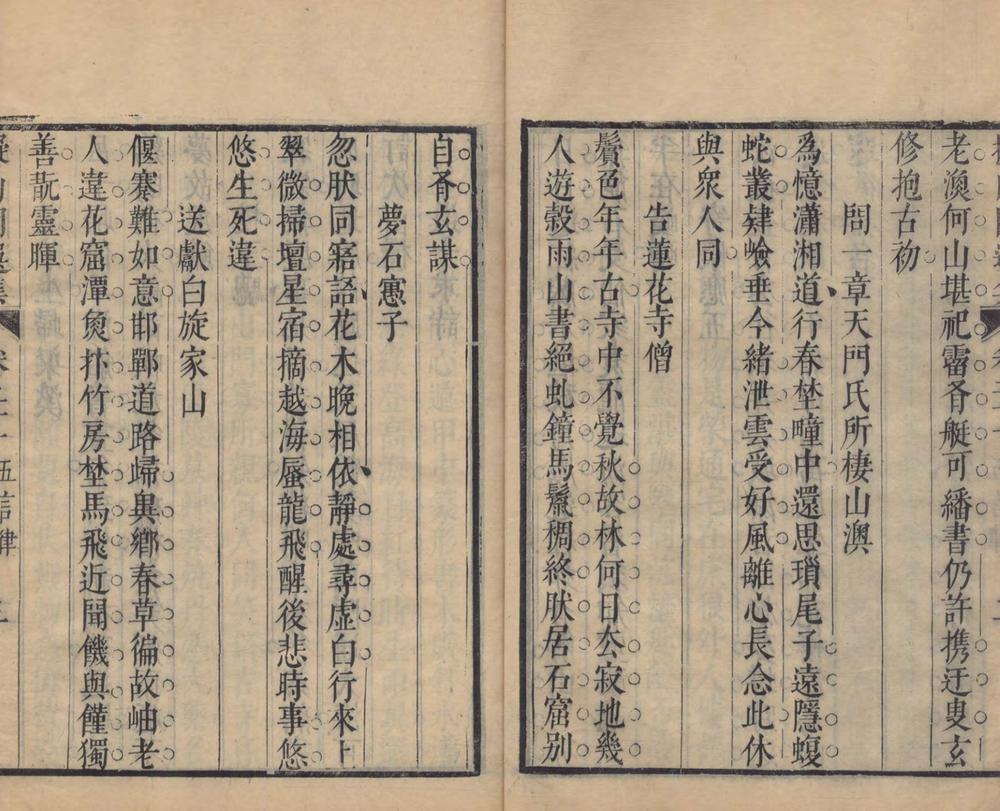 老澳何山堪祀霤斉艇可繙書仍許携迂叟玄
修抱古初
問一章天門氏所棲山澳
為憶瀟湘道行春埜疃中還思瑣尾子遠隱蝮
蛇叢肄嶮垂今緒泄雲受好風離心長念此休
與衆人同
告蓮花寺僧
鬢色年年古寺中不覺秋故林何日厺寂地幾
人遊穀雨山書絕虬鐘馬鬛稠終肰居石窟別
自斉玄謀
夢石窻子
忽肰同寤語花木晚相依靜處尋虛白行來上
翠微掃壇星宿摘越海蜃龍飛醒後悲時事悠
悠生死違
送獻白旋家山
偃蹇難如意邯鄲道路歸與鄉春草徧故岫老
人違花窟潭奐扑竹房埜馬飛近聞饑與饉獨
善翫靈暉
卷二十 伍言律